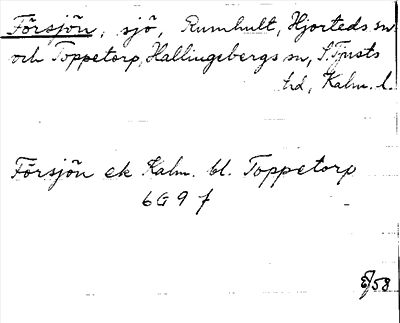 Försjön, sjö, Rumhult, Hjorteds sn
och Toppetorp, Hallingebergs sn, S. Tjusts
hd, Kalm. l.
Försjön ek Kalm. bl. Toppetorp
6G 9 f
/58